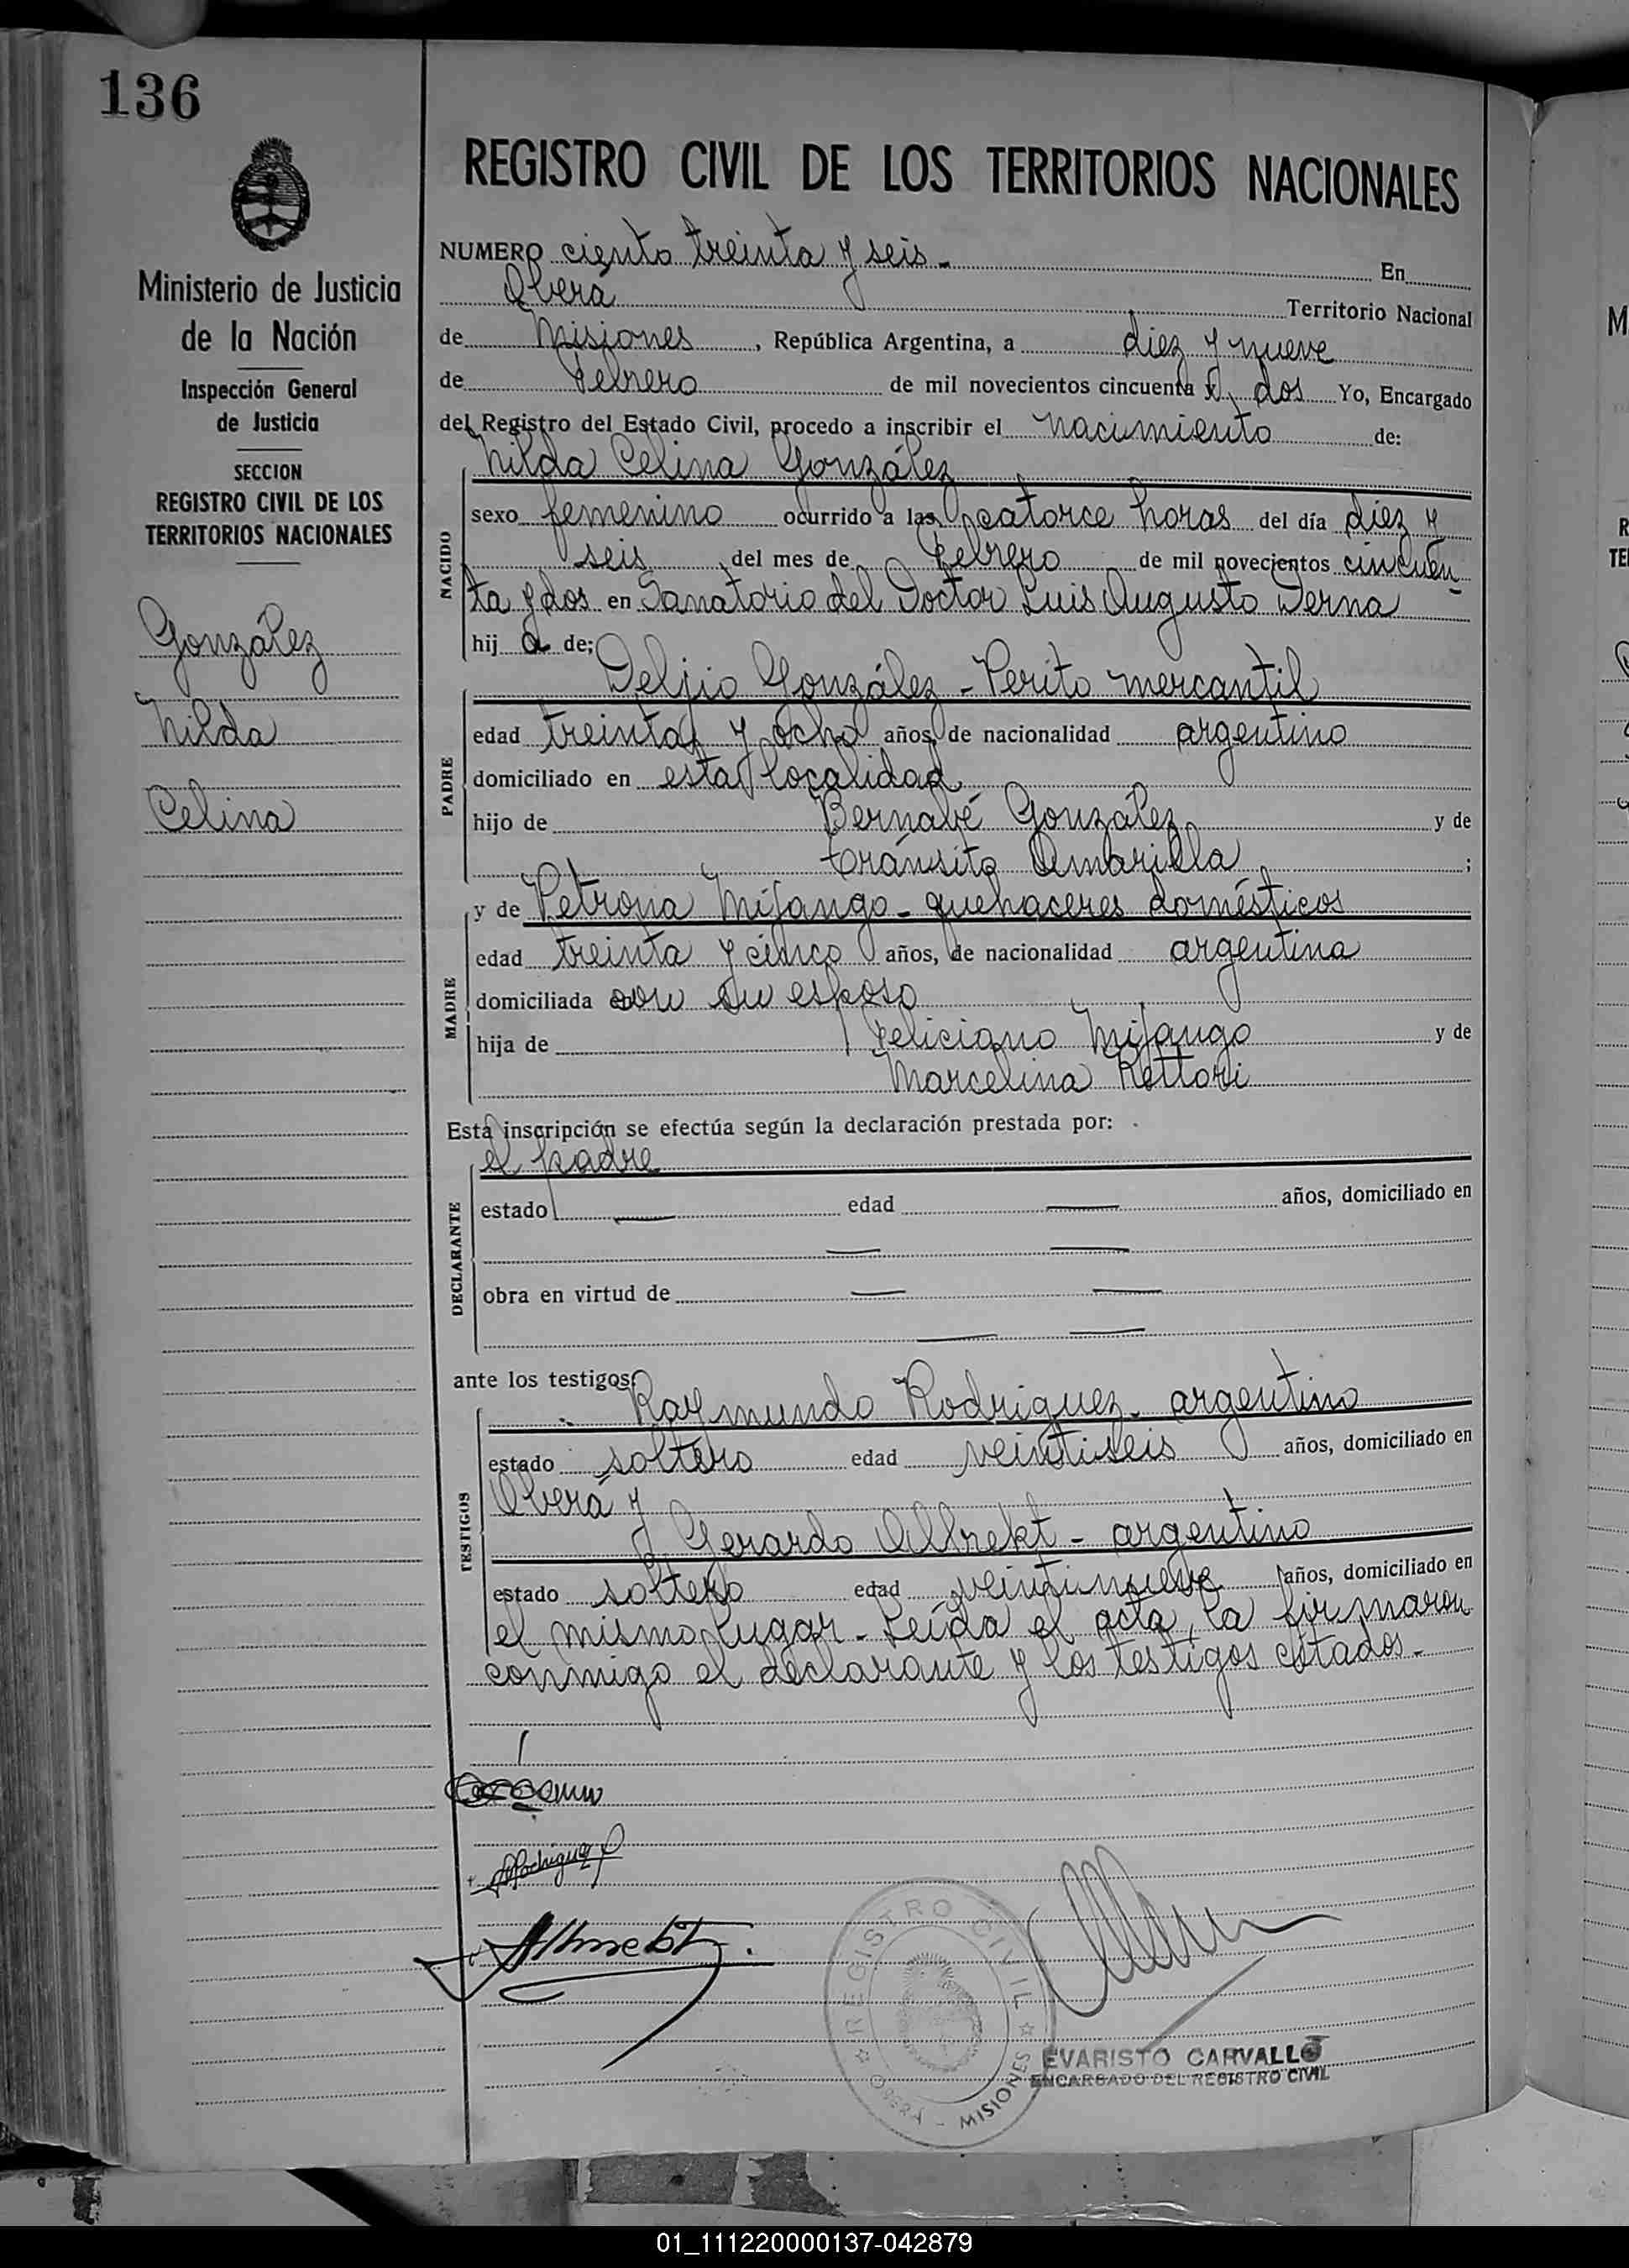 136
Ministerio de Justicia
de la Nación
Inspección General
de Justicia
SECCION
REGISTRO CIVIL DE LOS
TERRITORIOS NACIONALES
González
Nilda
Celina
REGISTRO CIVIL DE LOS TERRITORIOS NACIONALES
NUMERO ciento treinta y seis - En
Oberá Territorio Nacional
de Misiones, República Argentina, a diez y nueve
de Febrero de mil novecientos cincuenta y dos Yo, Encargado
del Registro del Estado Civil, procedo a inscribir el nacimiento de:
Nilda Celina González
NACIDO
sexo femenino ocurrido a las catorce horas del día diez y
seis del mes de Febrero de mil novecientos cincuen
ta y dos en Sanatorio del Doctor Luis Augusto Derna
hij a de;
PADRE
Deljio González - Perito mercantil
edad treinta y ocho años, de nacionalidad argentino
domiciliado en esta localidad
hijo de Bernabé González y de
tránsito Amarilla ;
MADRE
y de Petrona Mijango - quehaceres domésticos
edad treinta y cinco años, de nacionalidad argentina
domiciliada con su esposo
hija de Feliciano Mijango y de
Marcelina Rettori
Esta inscripción se efectúa según la declaración prestada por:
el padre
DECLARANTE
estado edad años, domiciliado en
obra en virtud de
ante los testigos:
TESTIGOS
Raymundo Rodriguez - argentino
estado soltero edad veintiseis años, domiciliado en
Oberá y
Gerardo Albrekt - argentino
estado soltero edad veintinueve años, domiciliado en
el mismo lugar - Leída el acta, la firmaron
conmigo el declarante y los testigos citados -
Rodriguez
Albrecht
REGISTRO CIVIL
OBERÁ - MISIONES
EVARISTO CARVALLO
ENCARGADO DEL REGISTRO CIVIL
01_111220000137-042879